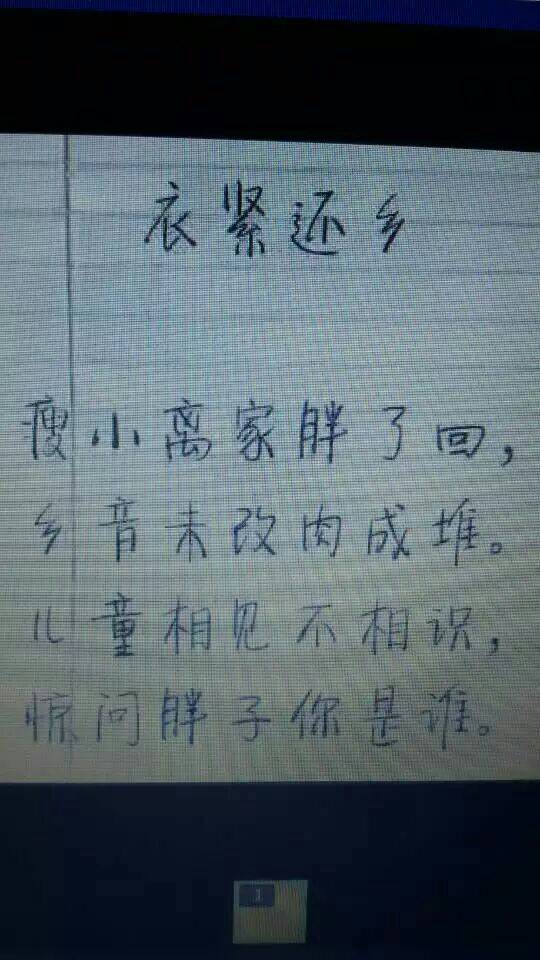 衣紧还乡
瘦小离家胖了回，
乡音未改肉成堆。
儿童相见不相识，
惊问胖子你是谁。
1